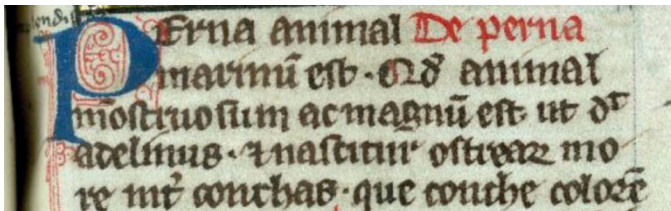 Perna animal De perna
marinū est. Qd̄ animal
mōstruosum ac magnū est ut dt̄
adelinus. ⁊ nascitur ostrear mo
re int̄ conchas. que conche colorē